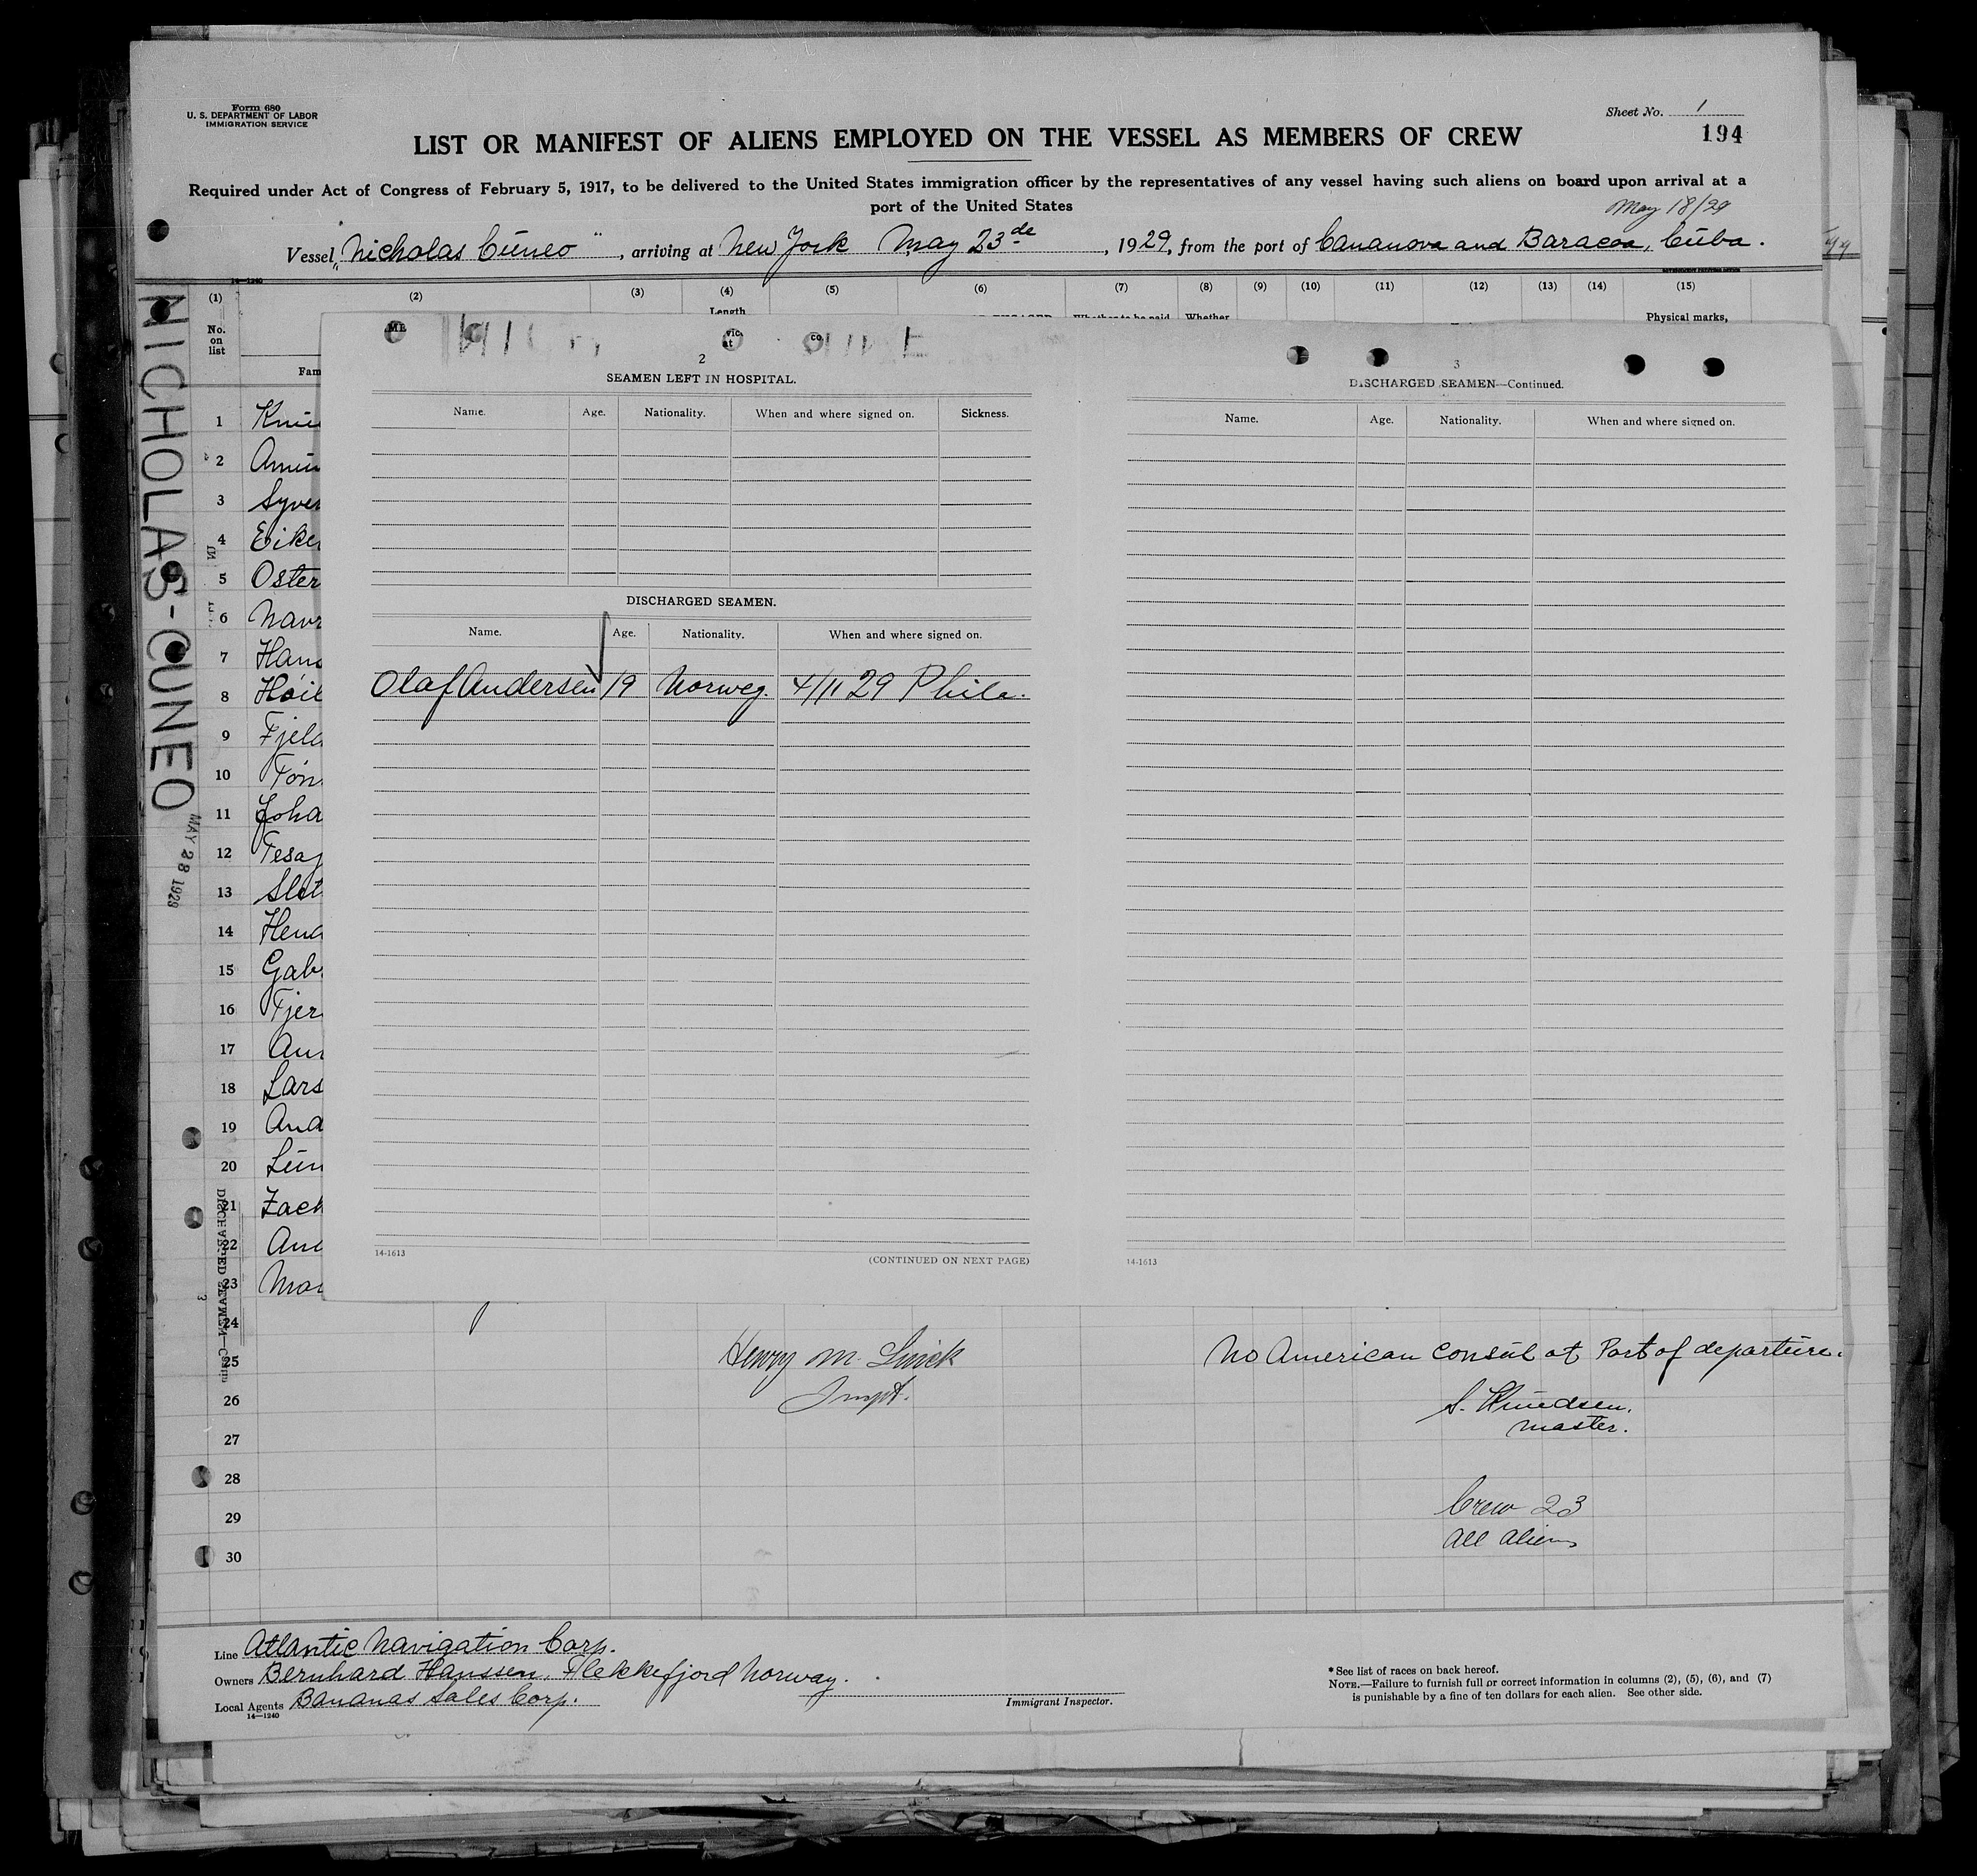 Form 680
U. S. DEPARTMENT OF LABOR
IMMIGRATION SERVICE
Sheet No. 1
194
LIST OR MANIFEST OF ALIENS EMPLOYED ON THE VESSEL AS MEMBERS OF CREW
Required under Act of Congress of February 5, 1917, to be delivered to the United States immigration officer by the representatives of any vessel having such aliens on board upon arrival at a
port of the United States
May 18/29
Vessel "Nicholas Cuneo", arriving at New York May 23de, 1929, from the port of Cananova and Baracoa, Cuba.
14—1240
(1) (2) (3) (4) (5) (6) (7) (8) (9) (10) (11) (12) (13) (14) (15)
No. on list
Length
Whether to be paid
Whether
Physical marks,
Fam
NICHOLAS-CUNEO
MAY 28 1929
1 Knu
2 Amun
3 Syver
4 Eike
5 Oster
6 Navr
7 Hans
8 Höil
9 Fjeld
10 Tön
11 Joha
12 Tesa
13 Slot
14 Hend
15 Gabr
16 Tjer
17 An
18 Lars
19 And
20 Lun
21 Zack
22 And
23 Mar
24
25
26
27
28
29
30
2
SEAMEN LEFT IN HOSPITAL.
Name. Age. Nationality. When and where signed on. Sickness.
DISCHARGED SEAMEN.
Name. Age. Nationality. When and where signed on.
Olaf Andersen 19 Norweg. 4/11 29 Phila.
14-1613
(CONTINUED ON NEXT PAGE)
3
DISCHARGED SEAMEN—Continued.
Name. Age. Nationality. When and where signed on.
14-1613
Henry M. Linick
Inspt.
No American Consul at Port of departure.
S. Knudsen.
master.
Crew 23
all aliens
Line Atlantic Navigation Corp.
Owners Bernhard Hanssen, Flekkefjord Norway.
Local Agents Bananas Sales Corp.
14—1240
Immigrant Inspector.
* See list of races on back hereof.
NOTE.—Failure to furnish full or correct information in columns (2), (5), (6), and (7)
is punishable by a fine of ten dollars for each alien. See other side.